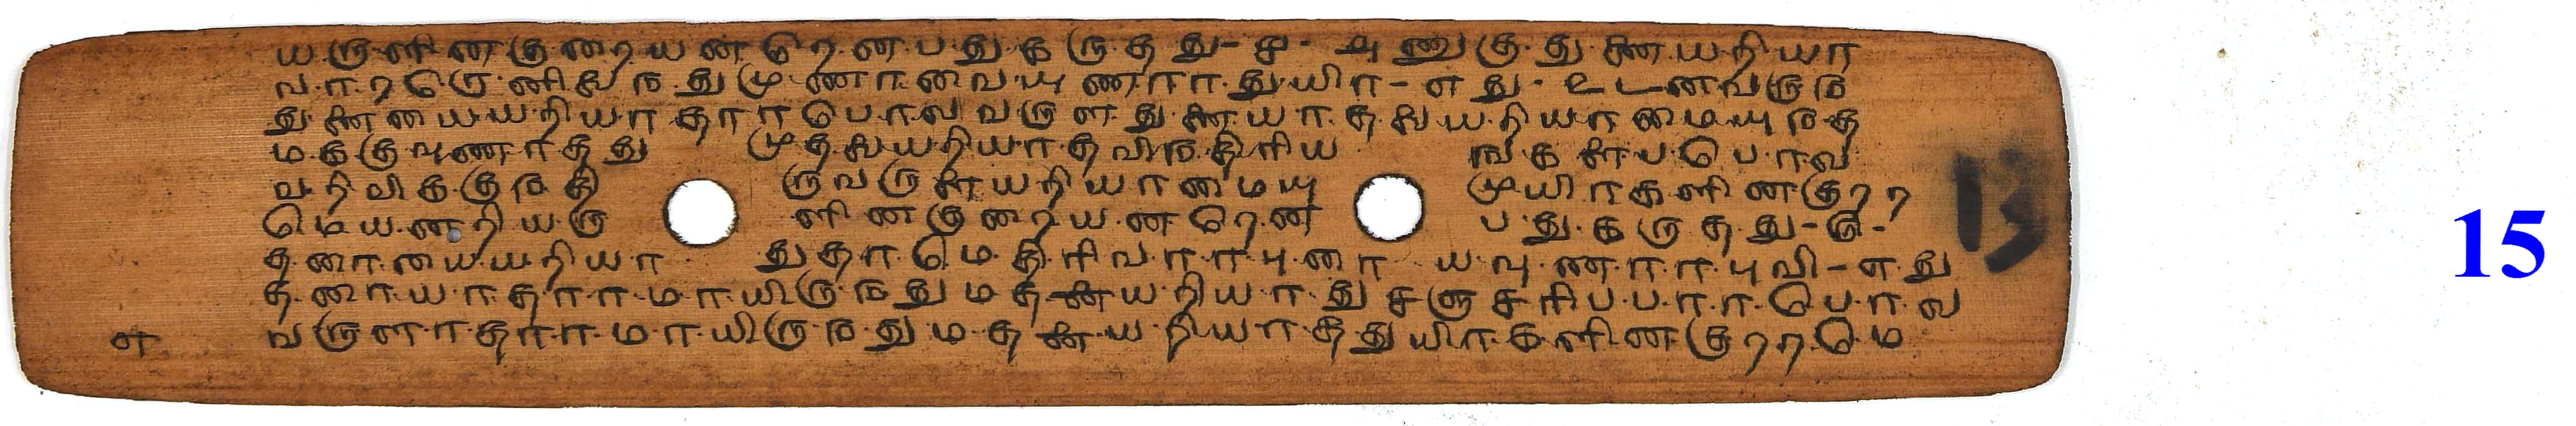 யருளினகுறையனறெனபதுகருதது-ச-அணுகுதுணையறியா
வாறறொருனிலைநதுமுணாவையுணாராதுயிா-எது-உடனவருந
துணையையறியாதாாபொலவருளதுணையாதலையறியாமையுநத
மககுவுணாதது முதலையறியாதவிநதிாிய ஙகளைபபொல
வறிவிககுநதி ருவருளையறியாமையு முயிாகளினகுறற
மெயனறியரு ளினகுறையனறென பதுகருதது-ரு-
தனாமையையறியா துதாமெதிாிவாாபுனா யவுணாாாபுவி-எது
தனையாதாாமாயிருநதுமதனையறியாதுசஞசாிபபாாபொல
வருளாதாாமாயிருநதுமதனையறியாததுயிாகளினகுறறமெ
எ
13
15